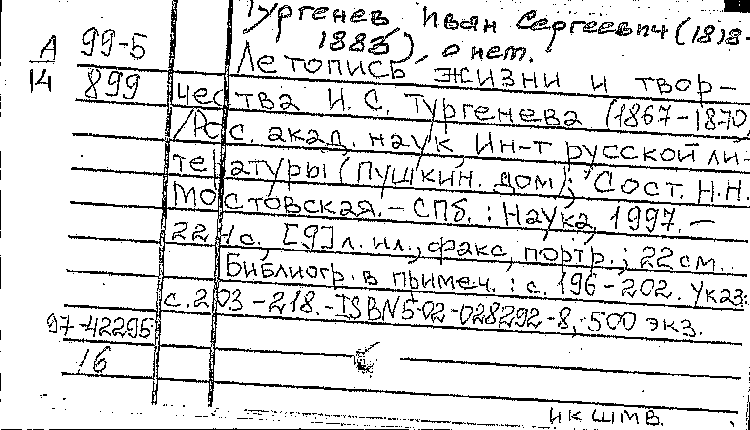 Тургенев Иван Сергеевич (1818-
А 99-5 1883), о нем.
14 899 Летопись жизни и твор-
чества И.С. Тургенева (1867-1870)
/Рос. акад. наук, Ин-т русской ли-
тературы (Пушкин. дом); Сост. Н.Н.
Мостовская. - СПб. : Наука, 1997. -
с., [9] л. ил., факс., портр.; 22 см.
Библиогр. в примеч. : с. 196-202. Указ:
с. 203-218. - ISBN 5-02-028292-8, 500 экз.
97-42295
16
ИКШМВ.